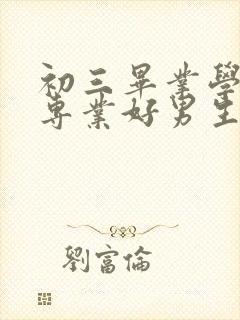 初三畢業學
專業好男生
劉富倫